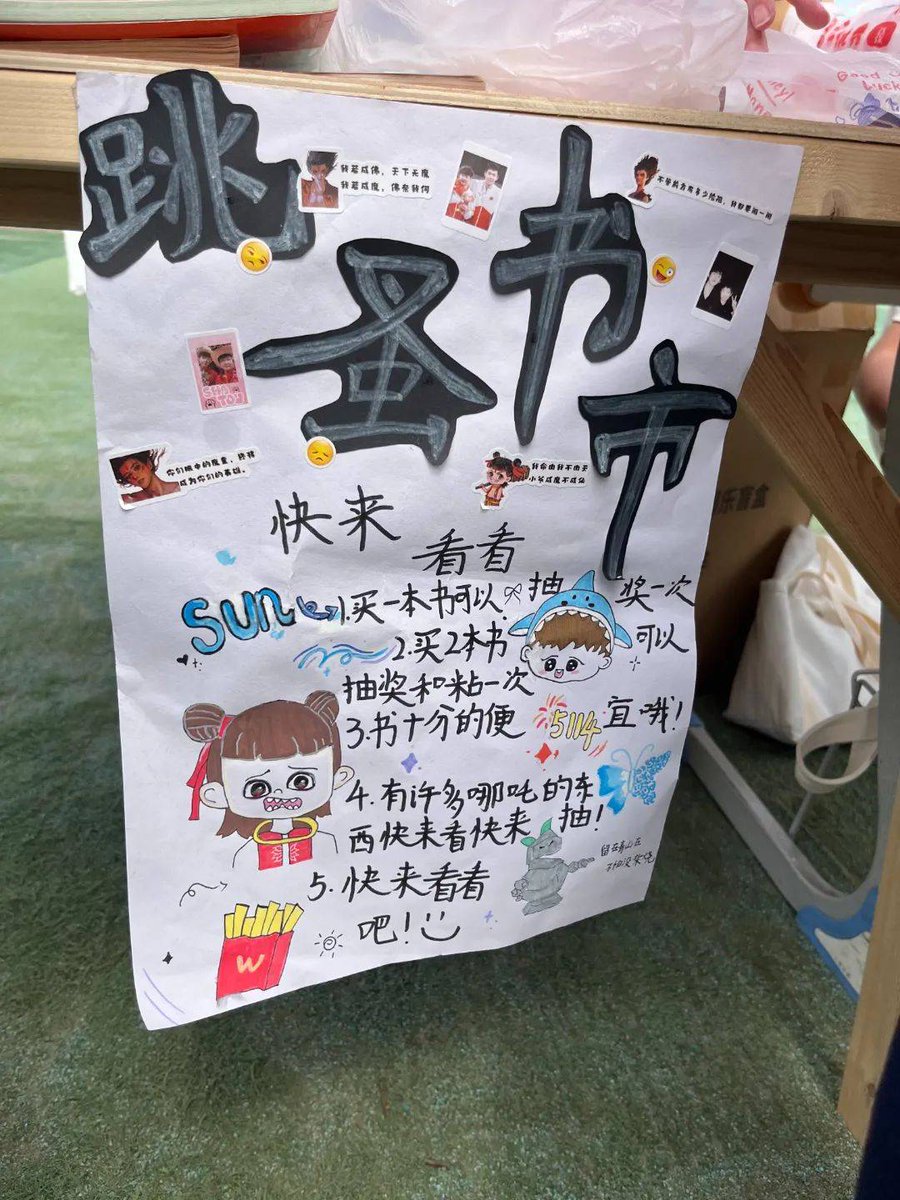 跳蚤书市
我若成佛，天下无魔
我若成魔，佛奈我何
不管前方有多少险阻，我都要闯一闯
你们眼中的魔童，终将
成为你们的英雄。
我命由我不由天
小爷成魔不成仙
快来
看看
SUN
1.买一本书可以抽奖一次
2.买2本书可以
抽奖和粘一次
3.书十分的便宜哦！
5114
4.有许多哪吒的东
西快来看快来抽！
留在青山在
不怕没柴烧
5.快来看看
吧！
W